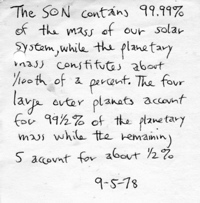 The SON contains 99.99%
of the mass of our solar
system, while the planetary
mass constitutes about
1/100th of a percent. The four
large outer planets account
for 99 1/2 % of the planetary
mass while the remaining
5 account for about 1/2 %
9-5-78